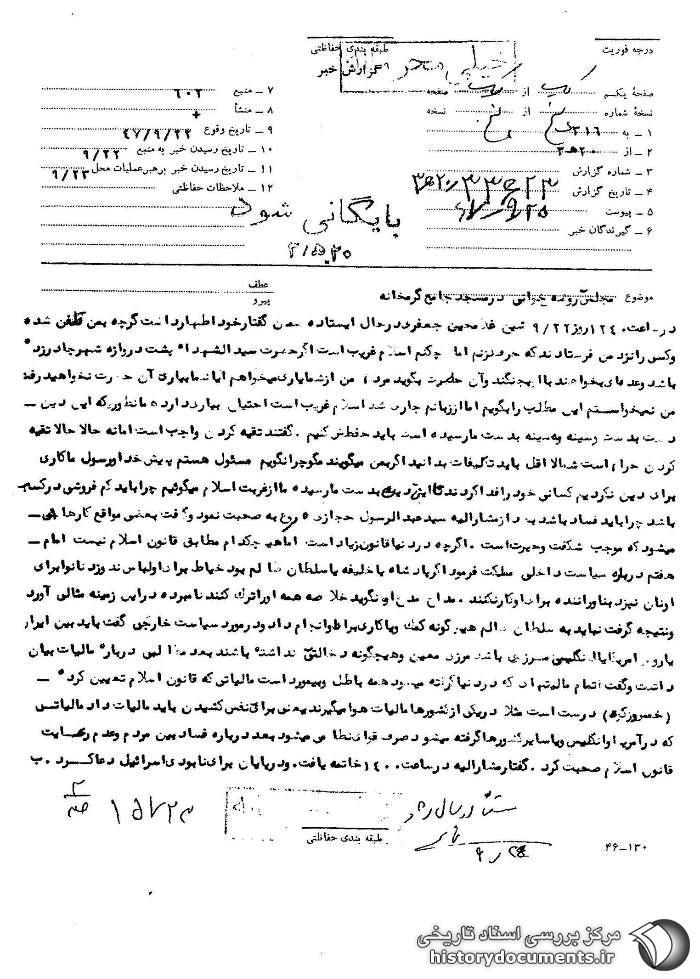 درجه فوریت
طبقه بندی حفاظتی
خیلی محرمانه
گزارش خبر
صفحه یکم یک از یک صفحه
نسخه شماره از نسخه
۱ - به ۳۱۶
۲ - از ۲۰ ه ۳
۳ - شماره گزارش
۴ - تاریخ گزارش ۴۷/۹/۲۵
۵ - پیوست
۶ - گیرندگان خبر
۷ - منبع ۶۰۲
۸ - منشأ
۹ - تاریخ وقوع ۴۷/۹/۲۲
۱۰ - تاریخ رسیدن خبر به منبع ۹/۲۲
۱۱ - تاریخ رسیدن خبر برهبرعملیات محل ۹/۲۳
۱۲ - ملاحظات حفاظتی
بایگانی شود
موضوع مجلس روضه خوانی در مسجد جامع کرمخانه
عطف
پیرو
در ساعت ۱۲۴۰ روز ۹/۲۲ شیخ غلامحسین جعفری در حال ایستاده ضمن گفتار خود اظهار داشت گرچه بمن تلفن شده
وکسی را نزد من فرستادند که حرف نزنم اما چکنم اسلام غریب است اگر حضرت سید الشهداء پشت دروازه شهر چادر زده
باشد وعده ای بخواهند با او بجنگند وآن حضرت بگوید مردم من از شما یاری میخواهم آیا شما بیاری آن حضرت نخواهید رفت
من نمیخواستم این مطلب را بگویم اما از زبانم جاری شد اسلام غریب است احتیاج بیاری دارد همانطوریکه این دین
دست بدست وسینه به سینه بدست ما رسیده است باید حفظش کنیم . گفتند تقیه کردن واجب است اما نه حالا حالا تقیه
کردن حرام است شما لااقل باید تکلیفات بدانید اگر بمن میگویند مگو چرا نگویم مسئول هستم پیش خدا و رسول ما کاری
برای دین نکردیم کسانی خود را فدا کردند تا این دین بدست ما رسیده ما از غربت اسلام میگوئیم چرا باید کم فروشی در کسب
باشد چرا باید فساد باشد بعد از مشارالیه سید عبدالرسول حجازی شروع به صحبت نمود وگفت بعضی مواقع کارهائی
میشود که موجب شگفت وحیرت است . اگرچه در دنیا قانون زیاد است اما هیچکدام مطابق قانون اسلام نیست امام
هفتم درباره سیاست داخلی مملکت فرمود اگر پادشاه یا خلیفه یا سلطان ظالم بود خیاط برای او لباس ندوزد نانوا برای
او نان نپزد بنا وراننده برای او کار نکنند . مداح مدح او نگوید خلاصه همه او را ترک کنند نامبرده در این زمینه مثالی آورد
ونتیجه گرفت نباید به سلطان ظالم هیچگونه کمک ویا کاری برای او انجام داد ودر مورد سیاست خارجی گفت باید بین ایران
با روس امریکا یا انگلیس مرزی باشد مرزی معین وهیچگونه دخالتی نداشته باشند بعد مطالبی درباره مالیات بیان
داشت وگفت تمام مالیتهائی که در دنیا گرفته میشود همه باطل وبیمورد است مالیاتی که قانون اسلام تعیین کرده
(خمس وزکوة) درست است مثلا در یکی از کشورها مالیات هوا میگیرند یعنی برای نفس کشیدن باید مالیات داد مالیاتی
که در آمریکا وانگلیس ویا سایر کشورها گرفته میشود صرف قوای نظامی میشود بعد درباره فساد بین مردم وعدم رعایت
قانون اسلام صحبت کرد . گفتار مشارالیه در ساعت ۱۴۰۰ خاتمه یافت . ودرپایان برای نابودی اسرائیل دعا کرد . ب
طبقه بندی حفاظتی
۴۶-۱۳۰
مرکز بررسی اسناد تاریخی
historydocuments.ir